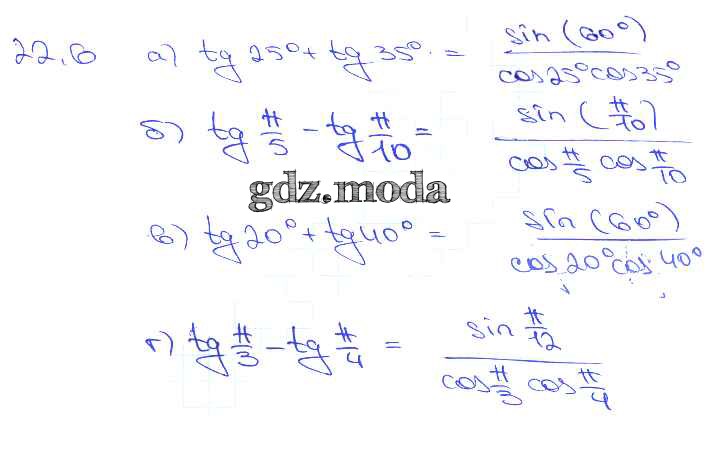 22.6 а) tg 25° + tg 35° = sin (60°) / cos 25° cos 35°
б) tg π/5 - tg π/10 = sin (π/10) / cos π/5 cos π/10
gdz.moda
в) tg 20° + tg 40° = sin (60°) / cos 20° cos 40°
г) tg π/3 - tg π/4 = sin π/12 / cos π/3 cos π/4